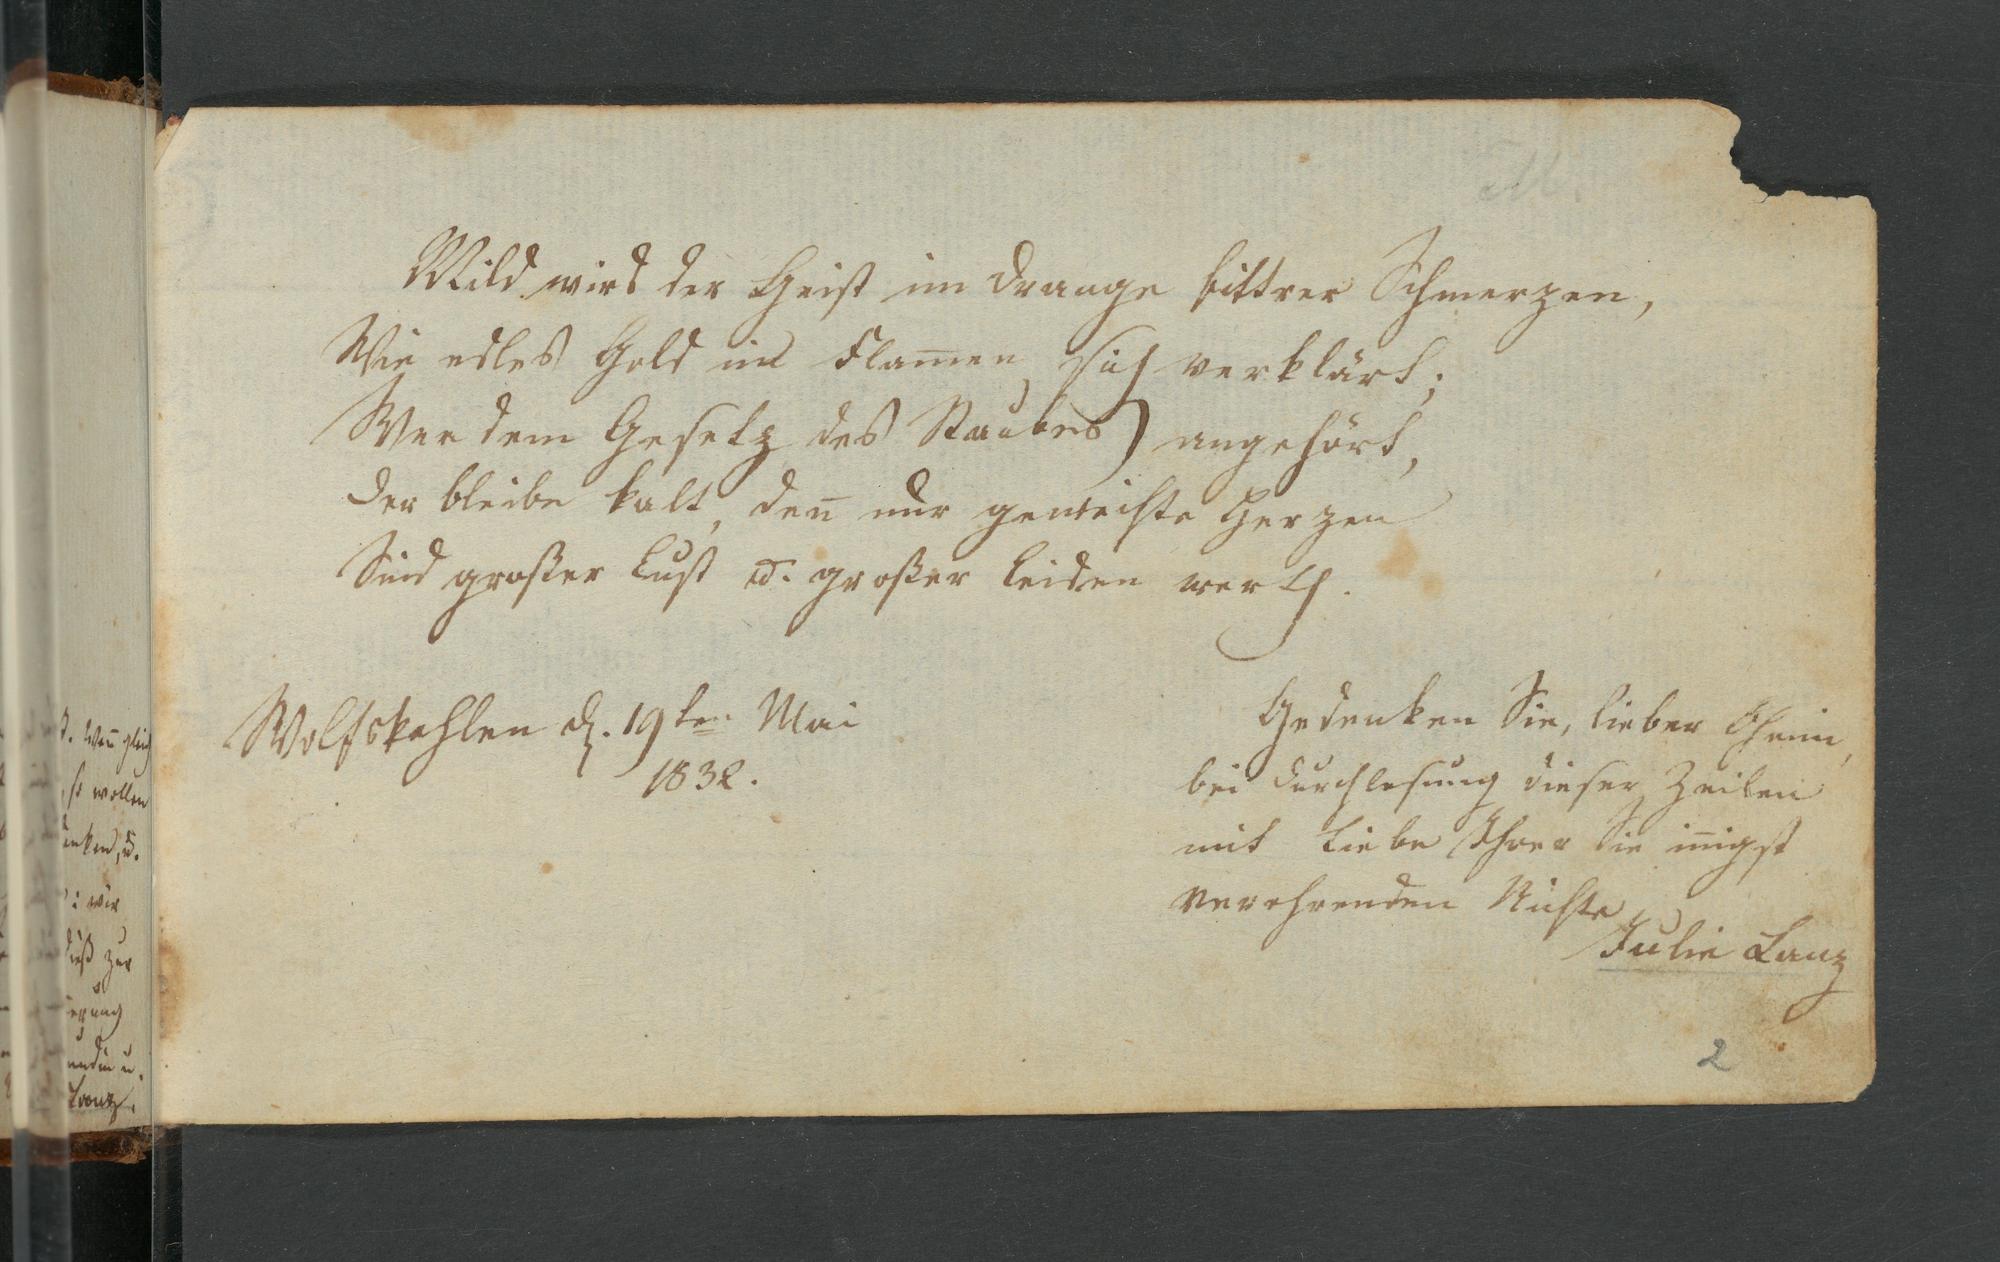 Mild wird der Geist im Drange bittrer Schmerzen,
Wie edles Gold in Flam̄en sich verklärt;
Wer dem Gesetz des Staubes angehört,
Der bleibe kalt, den̄ nur geweihte Herzen
Sind großer Lust u. großer Leiden werth.
Wolfskehlen d. 19ten Mai
1832.
Gedenken Sie, lieber Oheim,
bei Durchlesung dieser Zeilen
mit Liebe Ihrer Sie in̄igst
verehrenden Nichte
Julie Lanz
2
so wollen
wir
zur
Lanz.